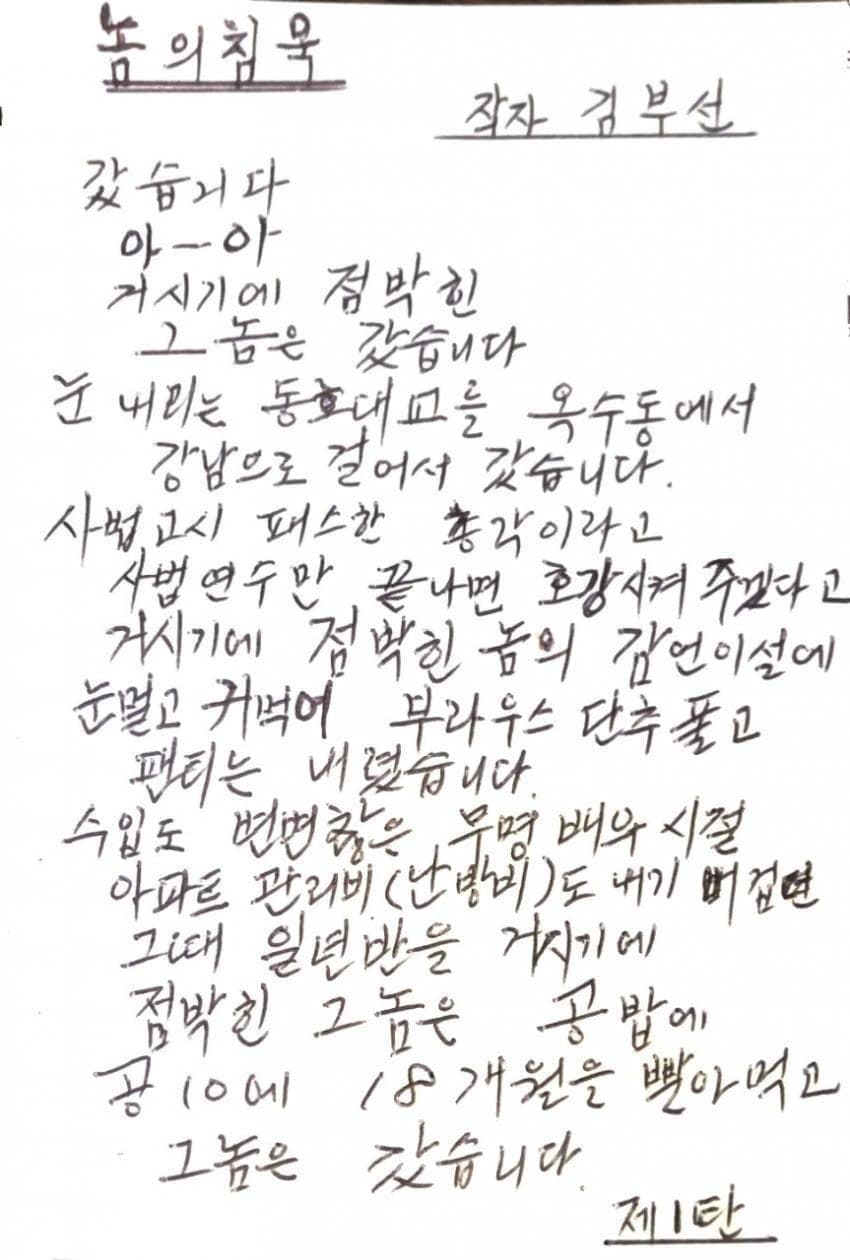 놈의침묵
작자 김부선
갔습니다
아—아
거시기에 점박힌
그놈은 갔습니다
눈 내리는 동호대교를 옥수동에서
강남으로 걸어서 갔습니다.
사법고시 패스한 총각이라고
사법연수만 끝나면 호강시켜 주겠다고
거시기에 점박힌 놈의 감언이설에
눈멀고 귀먹어 부라우스 단추 풀고
팬티는 내렸습니다.
수입도 변변찮은 무명 배우 시절
아파트 관리비(난방비)도 내기 버겁던
그때 일년반을 거시기에
점박힌 그놈은 공밥에
공10에 18개월을 빨아먹고
그놈은 갔습니다.
제1탄